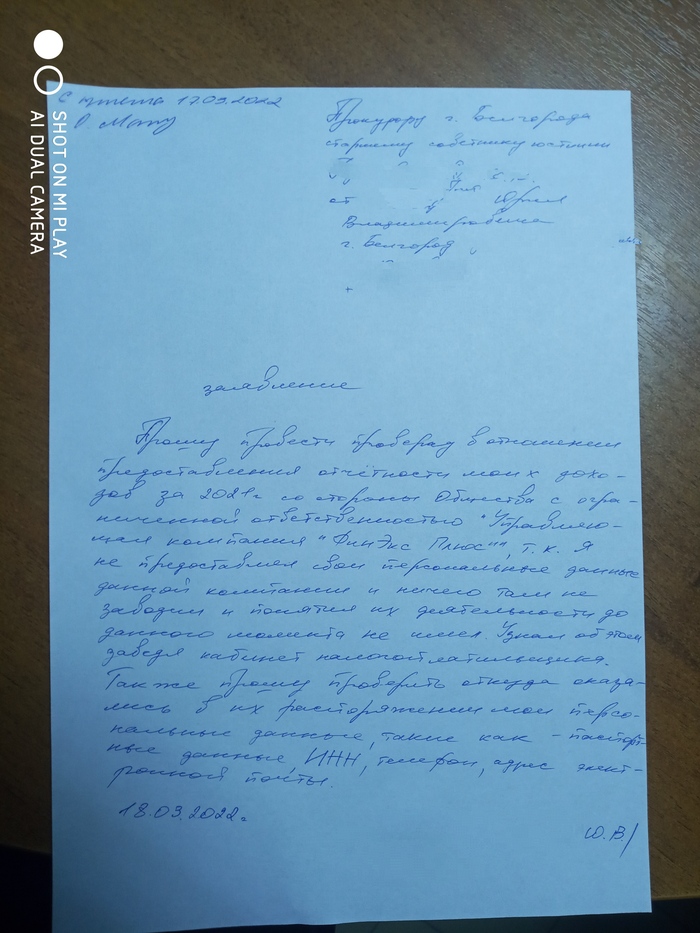 17.03.2022
Прокурору г. Белгорода
старшему советнику юстиции
от Юрия
Владимировича
г. Белгород
заявление
Прошу провести проверку в отношении
предоставления отчётности моих дохо-
дов за 2021г со стороны Общества с огра-
ниченной ответственностью "Управляю-
щая компания "ФинЭкс Плюс"", т.к. я
не предоставлял свои персональные данные
данной компании и ничего там не
заводил и понятия их деятельности до
данного момента не имел. Узнал об этом
заведя кабинет налогоплательщика.
Также прошу проверить откуда оказа-
лись в их распоряжении мои персо-
нальные данные, такие как - паспорт-
ные данные, ИНН, телефон, адрес элект-
ронной почты.
18.03.2022г.
Ю.В/
SHOT ON MI PLAY
AI DUAL CAMERA